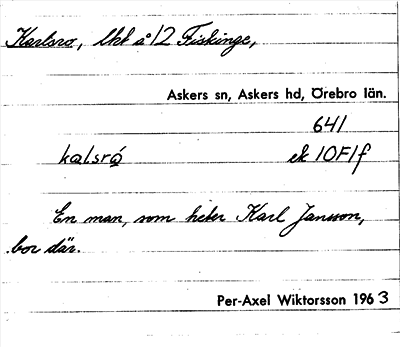 Karlsro, lht å 12 Fiskinge,
Askers sn, Askers hd, Örebro län.
641
kalsrọ́ ek 10F1f
En man, som heter Karl Jansson,
bor där.
Per-Axel Wiktorsson 1963